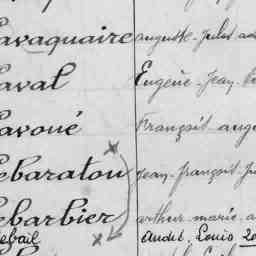 avaquaire auguste Jules
aval Eugène Jean
avoué François
ebaraton Jean François
ebarbier arthur marie
ebail André Louis